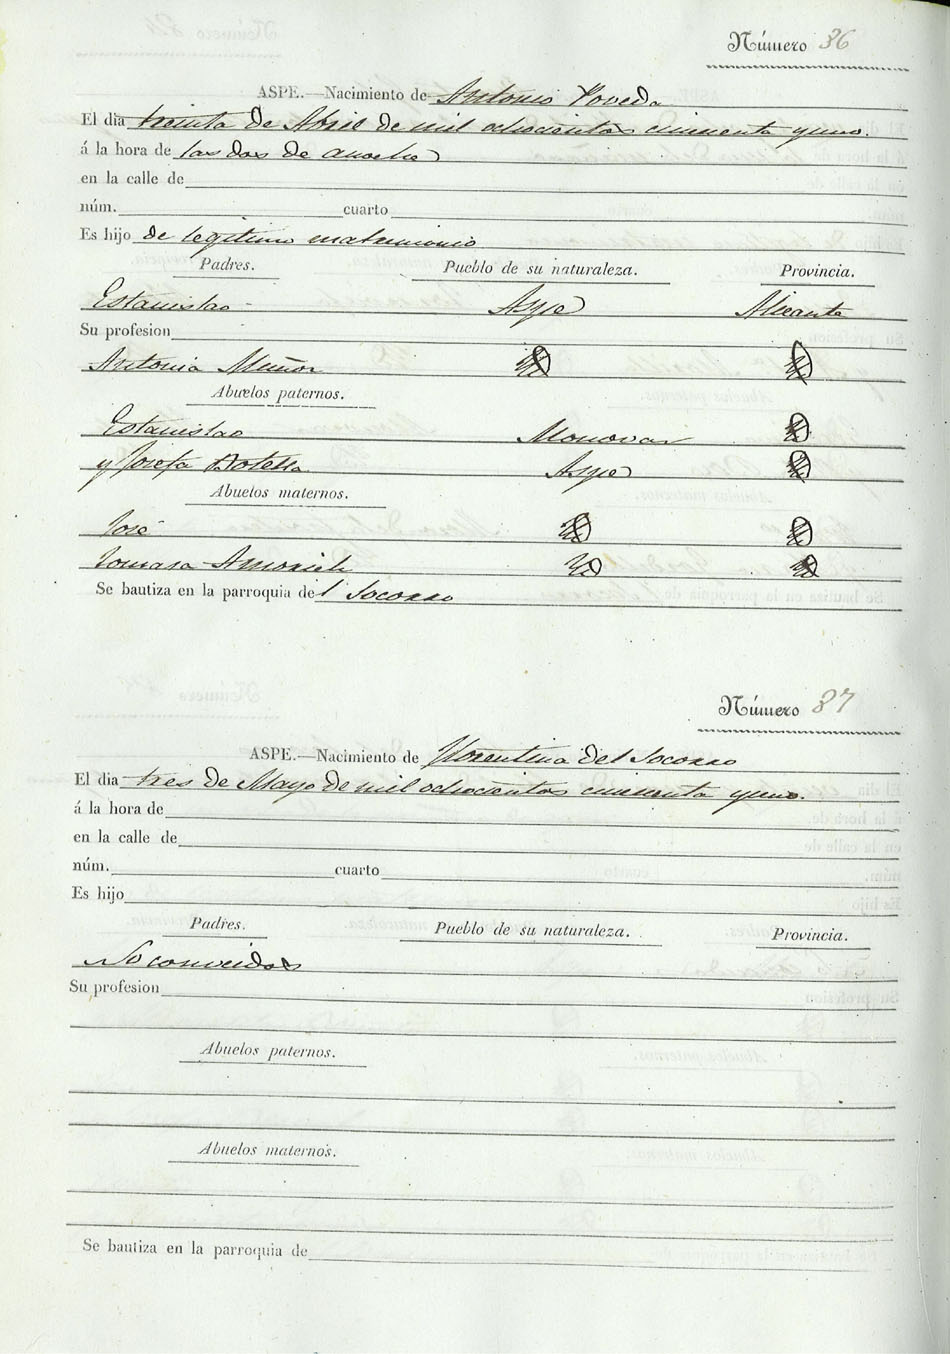 Número 86
ASPE.—Nacimiento de Antonio Poveda
El dia treinta de Abril de mil ochocientos cincuenta y uno.
á la hora de las dos de anoche
en la calle de
núm. cuarto
Es hijo de legitimo matrimonio
Padres. Pueblo de su naturaleza. Provincia.
Estanislao Aspe Alicante
Su profesion
Antonia Muñoz Yd Yd
Abuelos paternos.
Estanislao Monovar Yd
y Josefa Botella Aspe Yd
Abuelos maternos.
José Yd Yd
Tomasa Yd Yd
Se bautiza en la parroquia del Socorro
Número 87
ASPE.—Nacimiento de Florentina del Socorro
El dia tres de Mayo de mil ochocientos cincuenta y uno.
á la hora de
en la calle de
núm. cuarto
Es hijo
Padres. Pueblo de su naturaleza. Provincia.
No conocidos
Su profesion
Abuelos paternos.
Abuelos maternos.
Se bautiza en la parroquia de